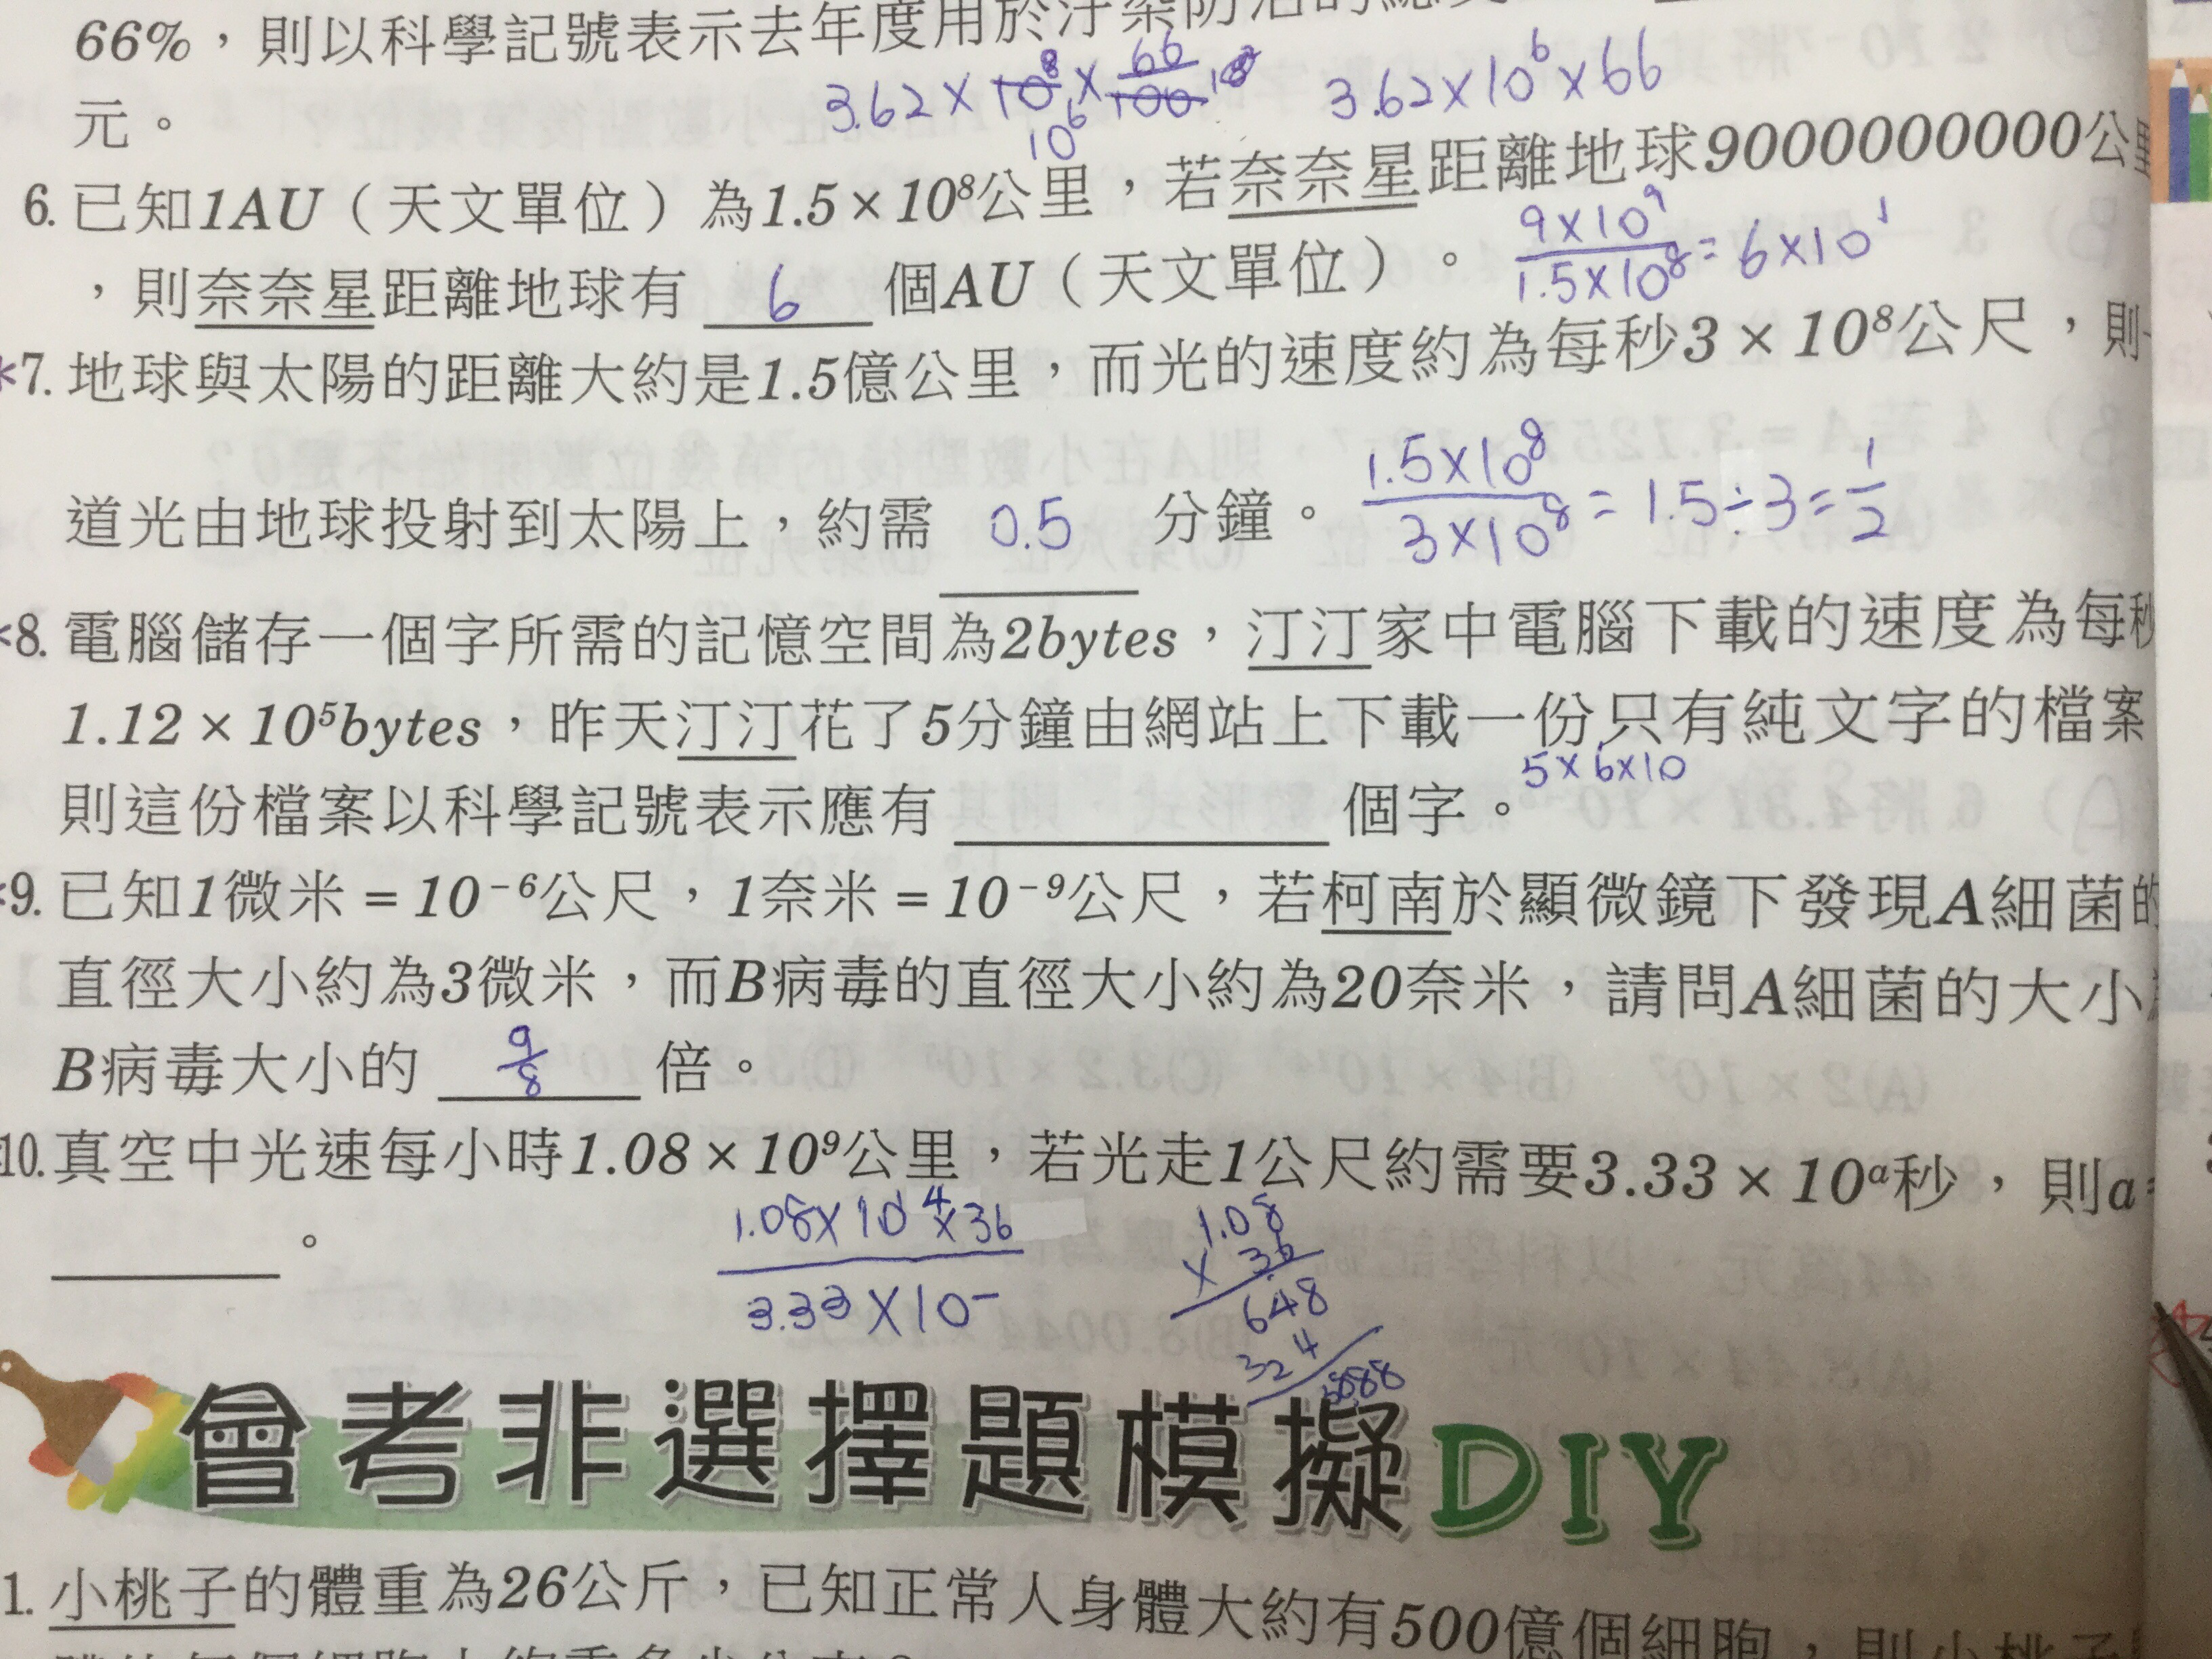 66%，則以科學記號表示去年度用於汙染防治的總
元。
3.62×10⁸×66/100
10⁶
3.62×10⁶×66
6. 已知1AU（天文單位）為1.5×10⁸公里，若奈奈星距離地球9000000000公里
，則奈奈星距離地球有 6 個AU（天文單位）。
9×10⁹/1.5×10⁸=6×10¹
*7. 地球與太陽的距離大約是1.5億公里，而光的速度約為每秒3×10⁸公尺，則一
道光由地球投射到太陽上，約需 0.5 分鐘。
1.5×10⁸/3×10⁸=1.5÷3=1/2
*8. 電腦儲存一個字所需的記憶空間為2bytes，汀汀家中電腦下載的速度為每秒
1.12×10⁵bytes，昨天汀汀花了5分鐘由網站上下載一份只有純文字的檔案
5×6×10
則這份檔案以科學記號表示應有 個字。
*9. 已知1微米=10⁻⁶公尺，1奈米=10⁻⁹公尺，若柯南於顯微鏡下發現A細菌的
直徑大小約為3微米，而B病毒的直徑大小約為20奈米，請問A細菌的大小
B病毒大小的 9/8 倍。
10. 真空中光速每小時1.08×10⁹公里，若光走1公尺約需要3.33×10ᵃ秒，則a=
。
1.08×10⁴×36
3.33×10⁻
1.08
×36
648
324
3888
會考非選擇題模擬DIY
1. 小桃子的體重為26公斤，已知正常人身體大約有500億個細胞，則小桃子